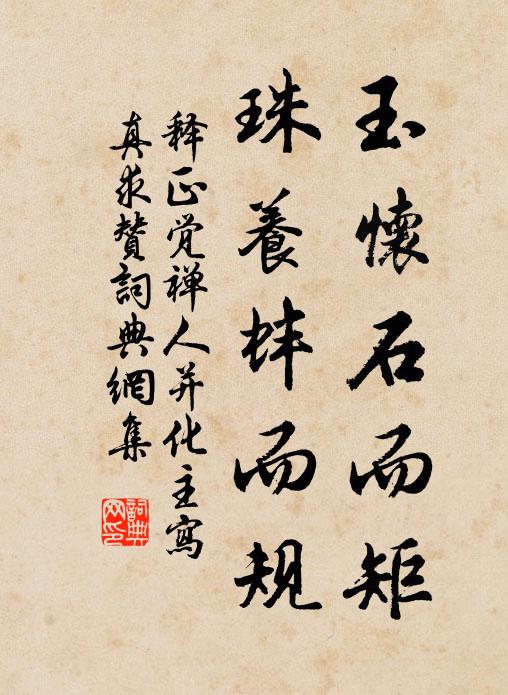 玉懷石而矩
珠養蚌而規
释正觉禅人并化主寫
真求賛詞典網集
詞典
网印